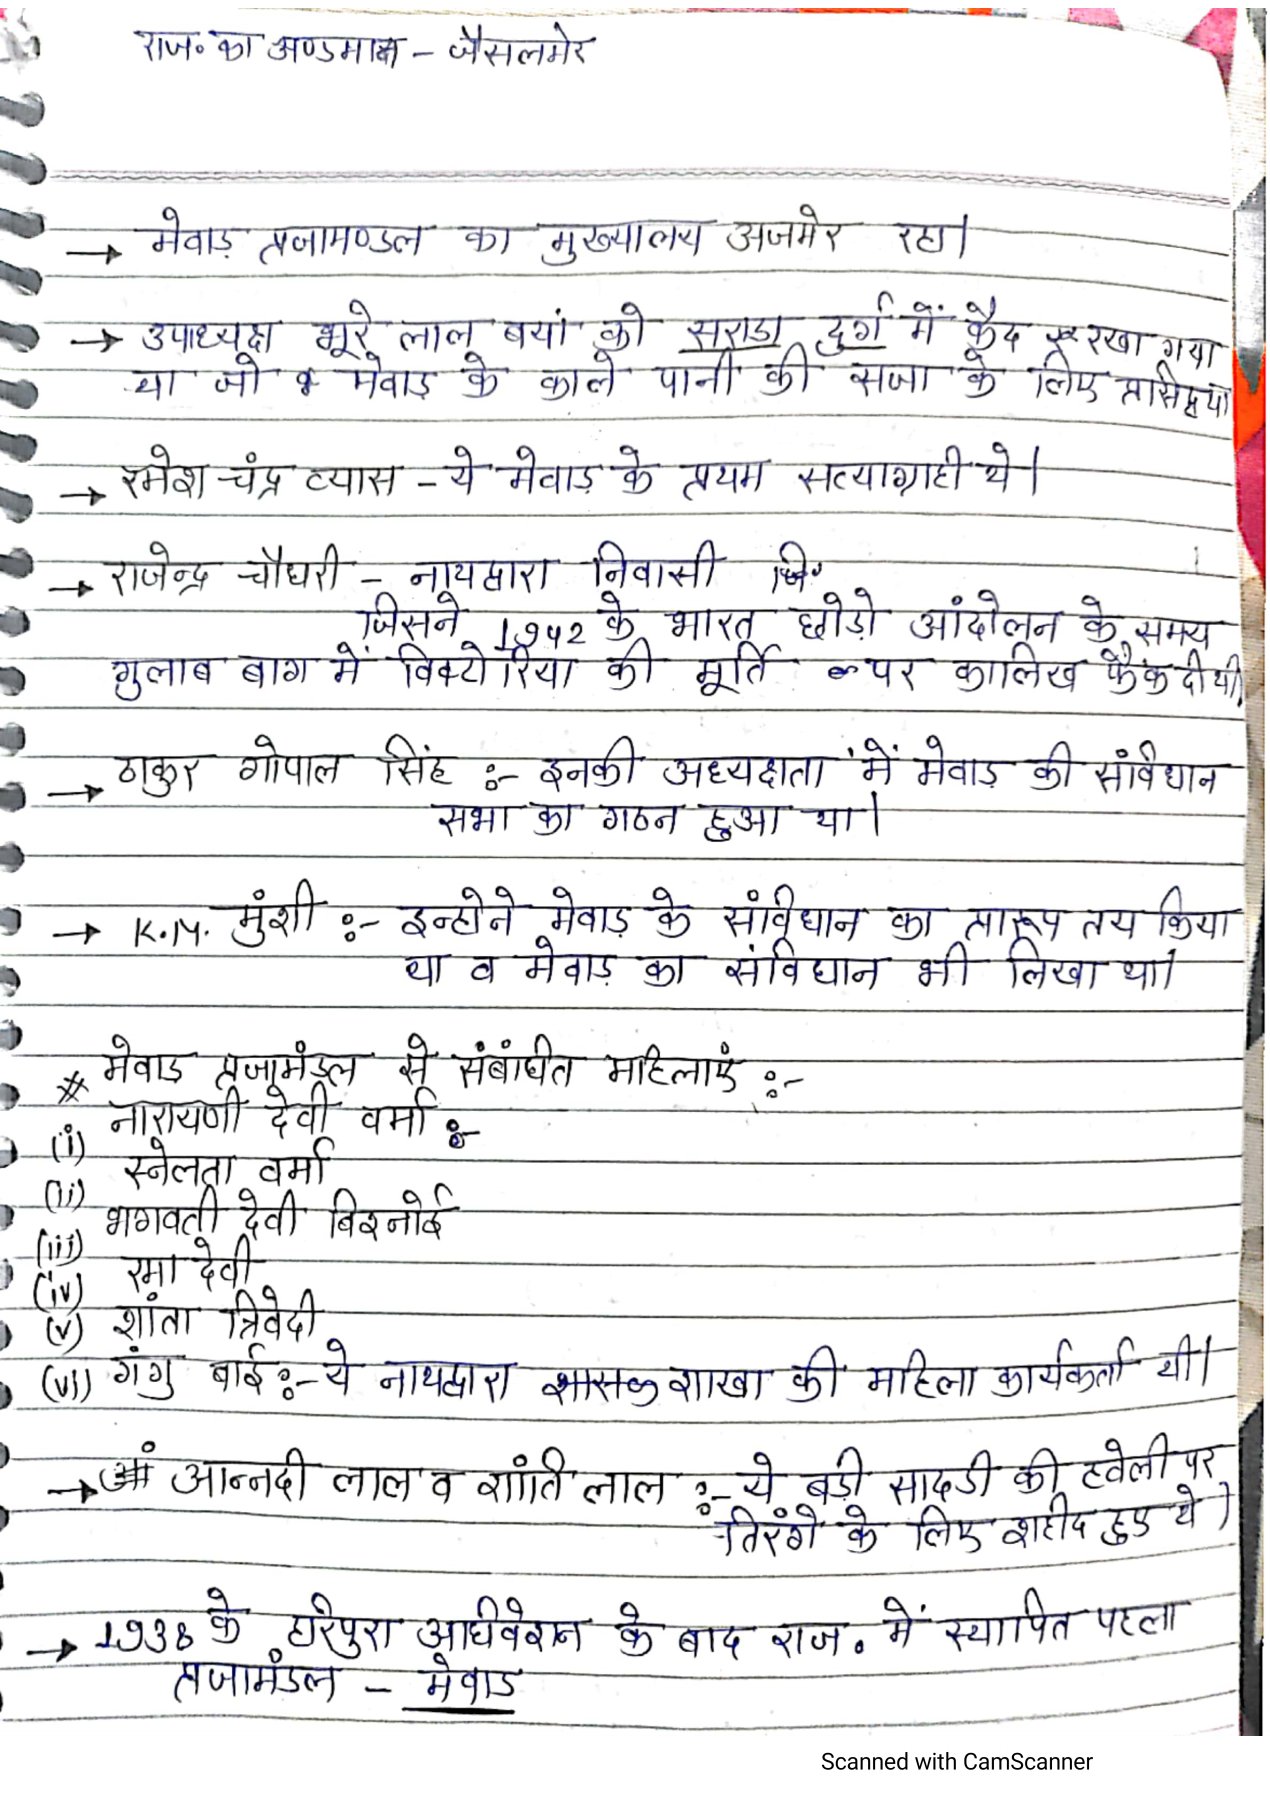 राज॰ का अण्डमान - जैसलमेर
→ मेवाड़ प्रजामण्डल का मुख्यालय अजमेर रहा।
→ उपाध्यक्ष भूरे लाल बयां को सराडा दुर्ग में कैद रखा गया
था जो मेवाड़ के काले पानी की सजा के लिए प्रसिद्ध था
→ रमेश चंद्र व्यास - ये मेवाड़ के प्रथम सत्याग्राही थे।
→ राजेन्द्र चौधरी - नाथद्वारा निवासी
जिसने 1942 के भारत छोड़ो आंदोलन के समय
गुलाब बाग में विक्टोरिया की मूर्ति पर कालिख फेंक दी थी
→ ठाकुर गोपाल सिंह :- इनकी अध्यक्षता में मेवाड़ की संविधान
सभा का गठन हुआ था।
→ K.M. मुंशी :- इन्होने मेवाड़ के संविधान का प्रारूप तय किया
था व मेवाड़ का संविधान भी लिखा था।
* मेवाड प्रजामंडल से संबंधित महिलाएं :-
(i) नारायणी देवी वर्मा :-
(ii) स्नेलता वर्मा
(iii) भगवती देवी बिश्नोई
(iv) रमा देवी
(v) शांता त्रिवेदी
(vi) गंगु बाई :- ये नाथद्वारा शाखा की महिला कार्यकर्ता थी।
→ आन्नदी लाल व शांति लाल :- ये बड़ी सादडी की हवेली पर
तिरंगे के लिए शहीद हुए थे।
→ 1938 के हरिपुरा अधिवेशन के बाद राज॰ में स्थापित पहला
प्रजामंडल - मेवाड
Scanned with CamScanner